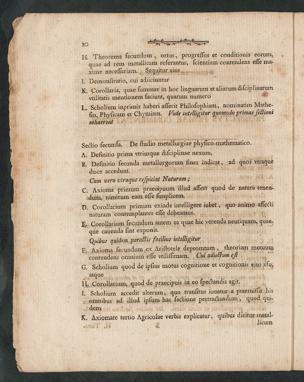 20
H. Theorema secundum, ortus, progressus et conditionis eorum,
quae ad rem metallicam referuntur, scientiam contendens esse ma-
xime necessariam. Sequitur eius
I. Demonstratio, cui adiiciuntur
K. Corollaria, quae summae in hoc linguarum et aliarum disciplinarum
vtilitatis mentionem faciunt, quorum numero
L. Scholium inprimis haberi asserit Philosophiam, nominatim Mathe-
sin, Physicam et Chymiam. Vnde intelligitur quomodo primae sectioni
cohaereat
Sectio secunda. De studio metallurgiae physico-mathematico.
A. Definitio prima vtriusque disciplinae nexum,
B. Definitio secunda metallurgorum fines indicat, ad quos vtraque
duce accedunt.
Cum vero vtraque respiciat Naturam;
C. Axioma primum praecipuum illud asserit quod de natura tenen-
dum, nimirum eam esse simplicem.
D. Corollarium primum exinde intelligere iubet, quo animo affecti
naturam contemplantes esse debeamus.
E. Corollarium secundum autem ea quae hic verenda neutiquam, quae-
que cauenda sint exponit.
Quibus quidem peractis facilius intelligitur
F. Axioma secundum ex Aristotele depromtum, theoriam motuum
contendens omnium esse vtilissimam. Cui adiectum est
G. Scholium quod de ipsius motus cognitione et cognitionis eius vsu,
atque
H. Corollarium, quod de praecipuis in eo spectandis agit.
I. Scholium accedit alterum, quo transitus iuuatur a praemissis his
omnibus ad illud ipsum hac sectione pertractandum, quod qui-
dem
K. Axiomate tertio Agricolae verbis explicatur, quibus dicitur metal-
licum